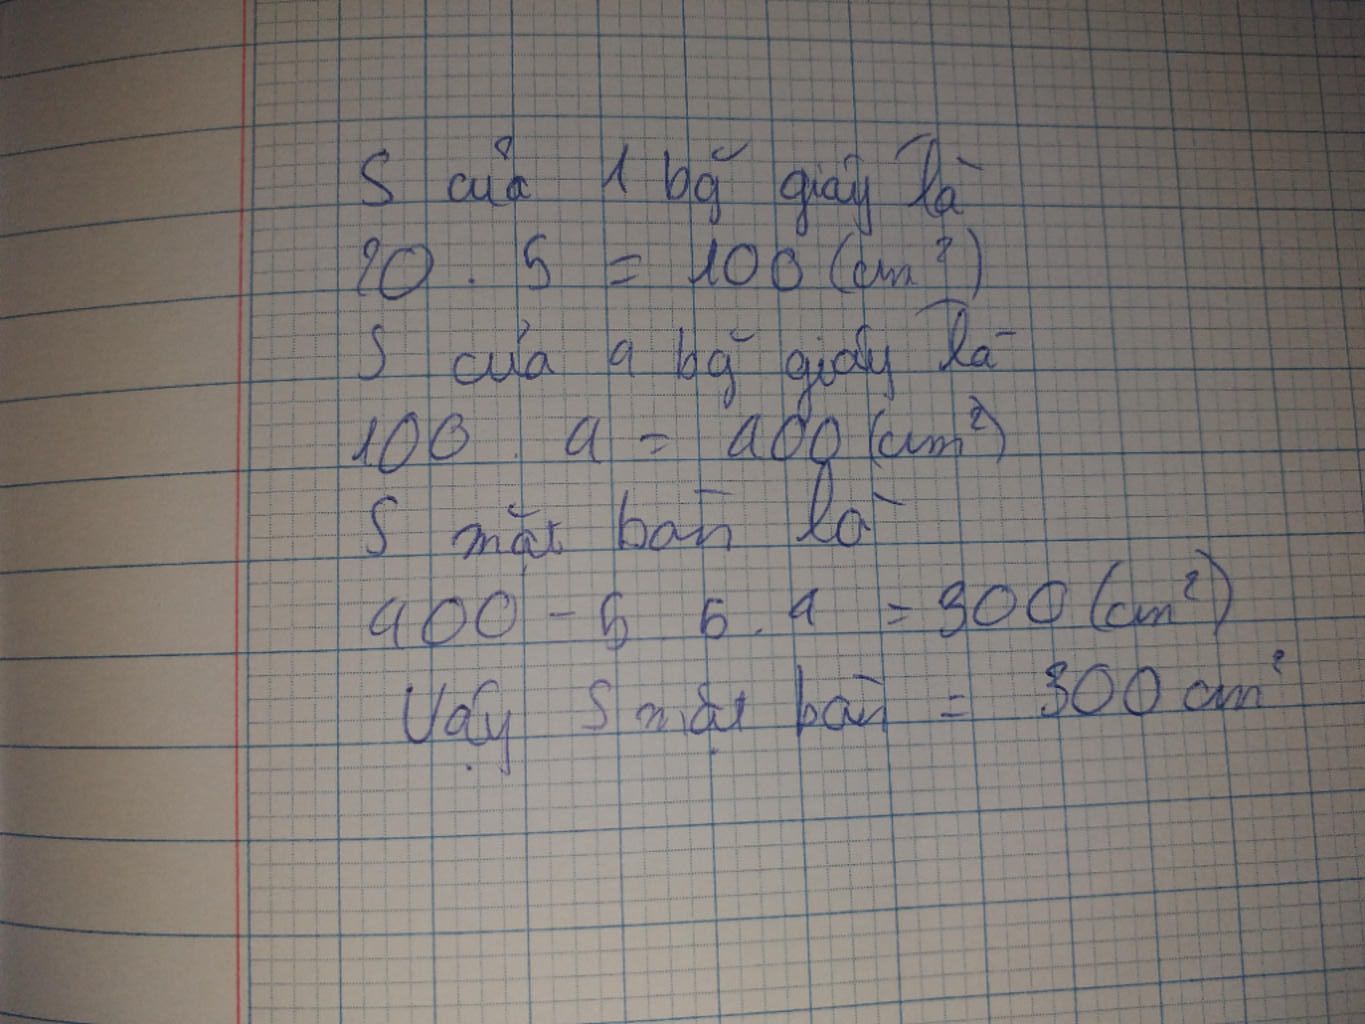 S của 1 bg̃ giấy là
20 . 5 = 100 (cm²)
S của 4 bg̃ giấy là
100 . 4 = 400 (cm²)
S mặt bàn là
400 - 5 5 . 4 = 300 (cm²)
Vậy S mặt bàn = 300 cm²